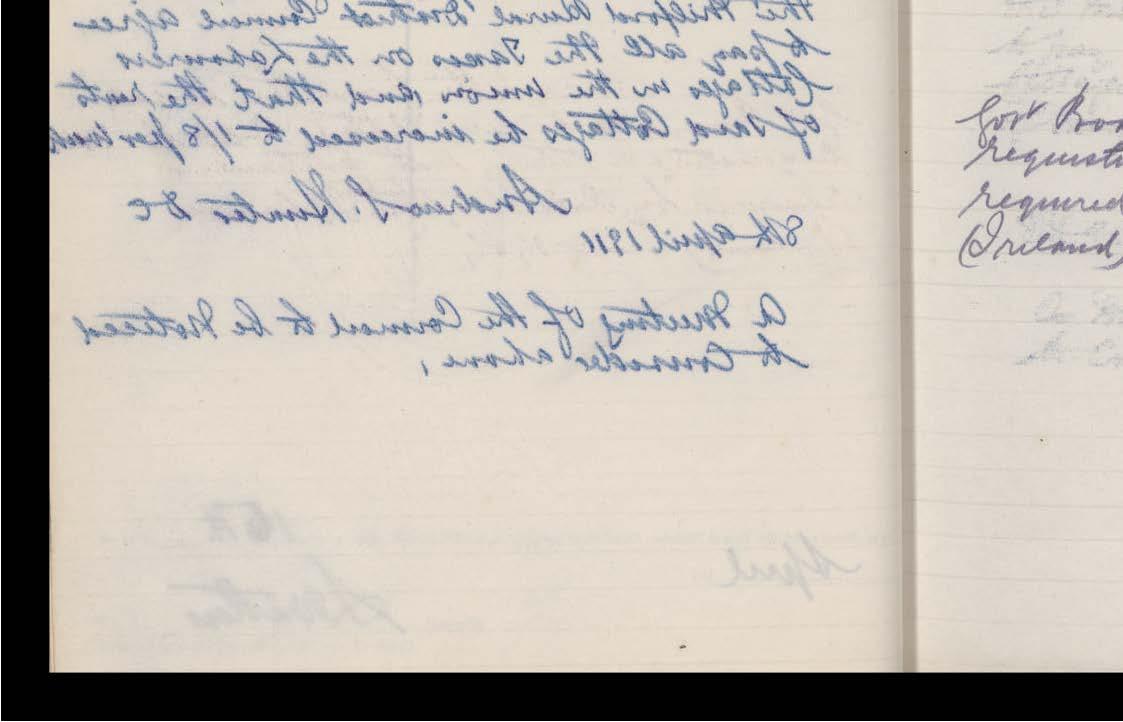 the Milford Rural District Council agree
to pay all the Taxes on the Labourers
Cottages in the Union and that the rents
of said Cottages be increased to 1/8 per week
Andrew S. Hunter D C
8th april 1911
A Meeting of the Council to be Noticed
to Consider above,
15th
April
Gov't
requesti
required
(Ireland)